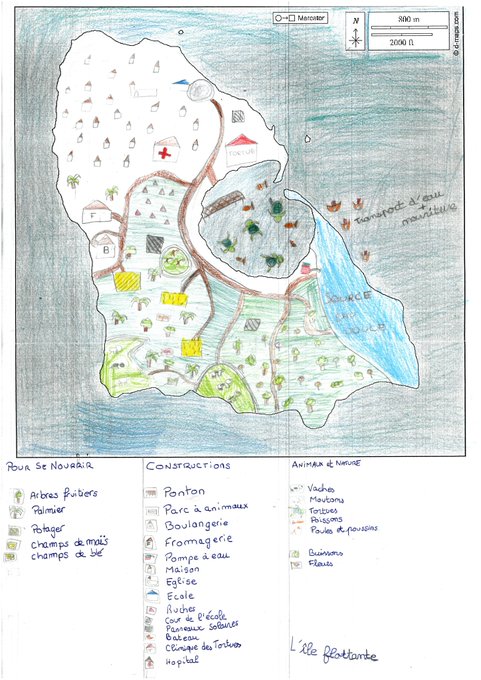 Mercator
N
800 m
2000 ft
© d-maps.com
TORTUE
Transport d'eau
+
nourriture
F
B
SOURCE
EAU
DOUCE
POUR SE NOURRIR
Arbres fruitiers
Palmier
Potager
champs de maïs
champs de blé
CONSTRUCTIONS
Ponton
Parc à animaux
Boulangerie
Fromagerie
Pompe à eau
Maison
Eglise
Ecole
Ruches
Cour de l'école
Panneaux solaires
Bateau
Clinique des Tortues
Hopital
ANIMAUX et NATURE
Vaches
Moutons
Tortues
Poissons
Poules et poussins
Buissons
Fleurs
L'île flottante